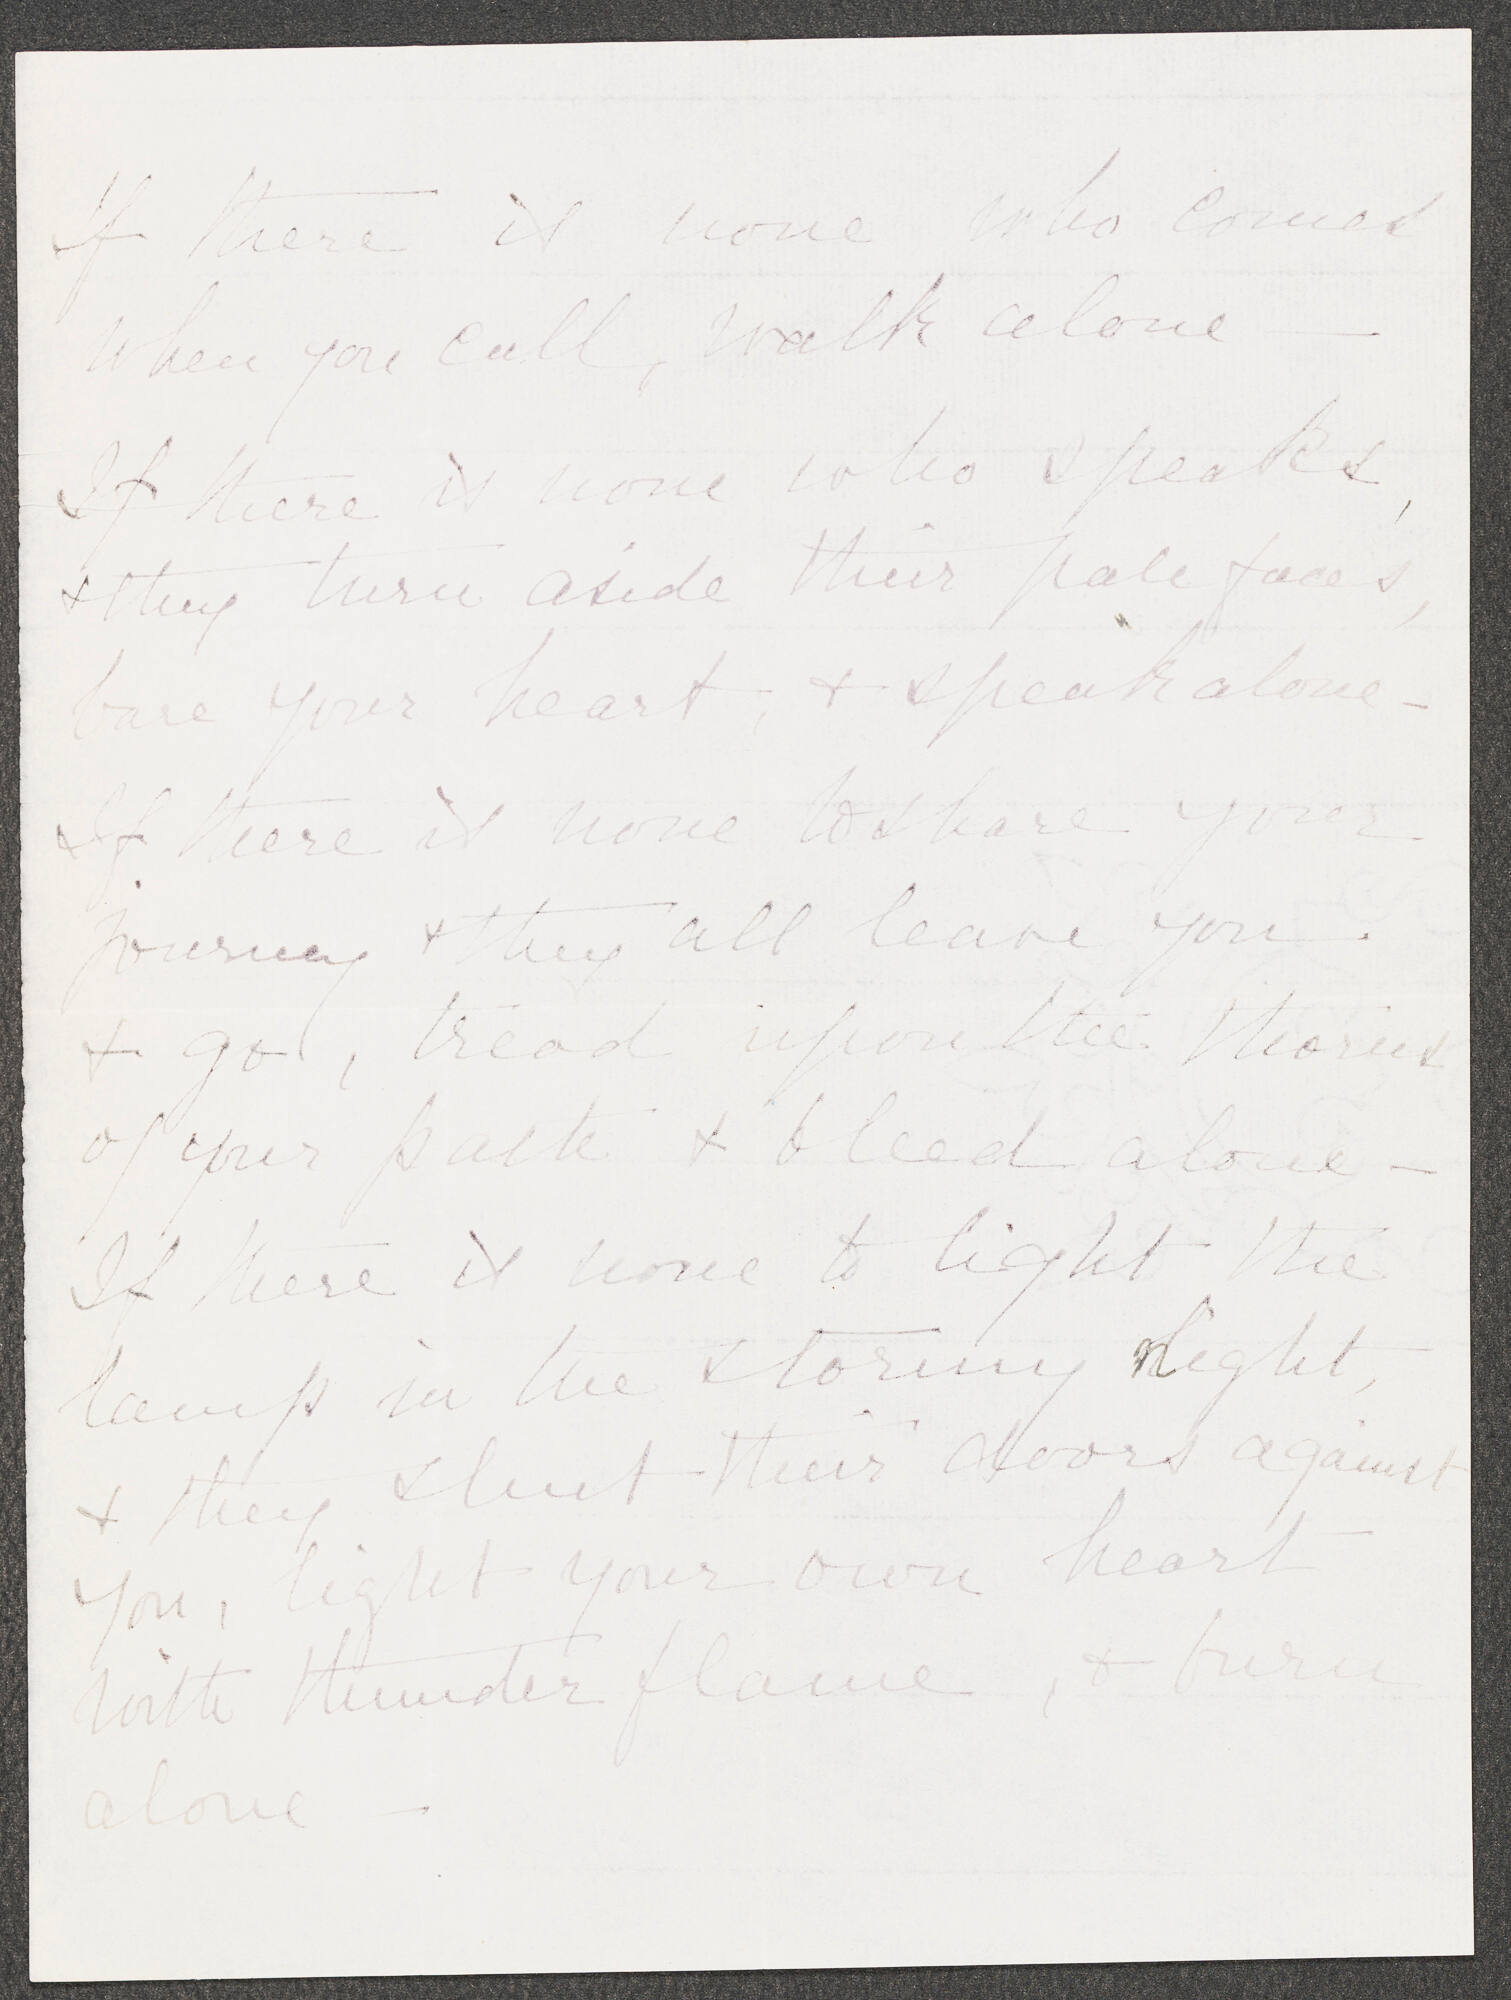 If there is none who comes
when you call, walk alone —
If there is none who speaks,
& they turn aside their pale faces,
bare your heart, & speak alone —
If there is none to share your
journey & they all leave you
& go, tread upon the thorns
of your path & bleed alone —
If there is none to light the
lamp in the stormy night,
& they shut their doors against
you, light your own heart
with thunder flame, & burn
alone —